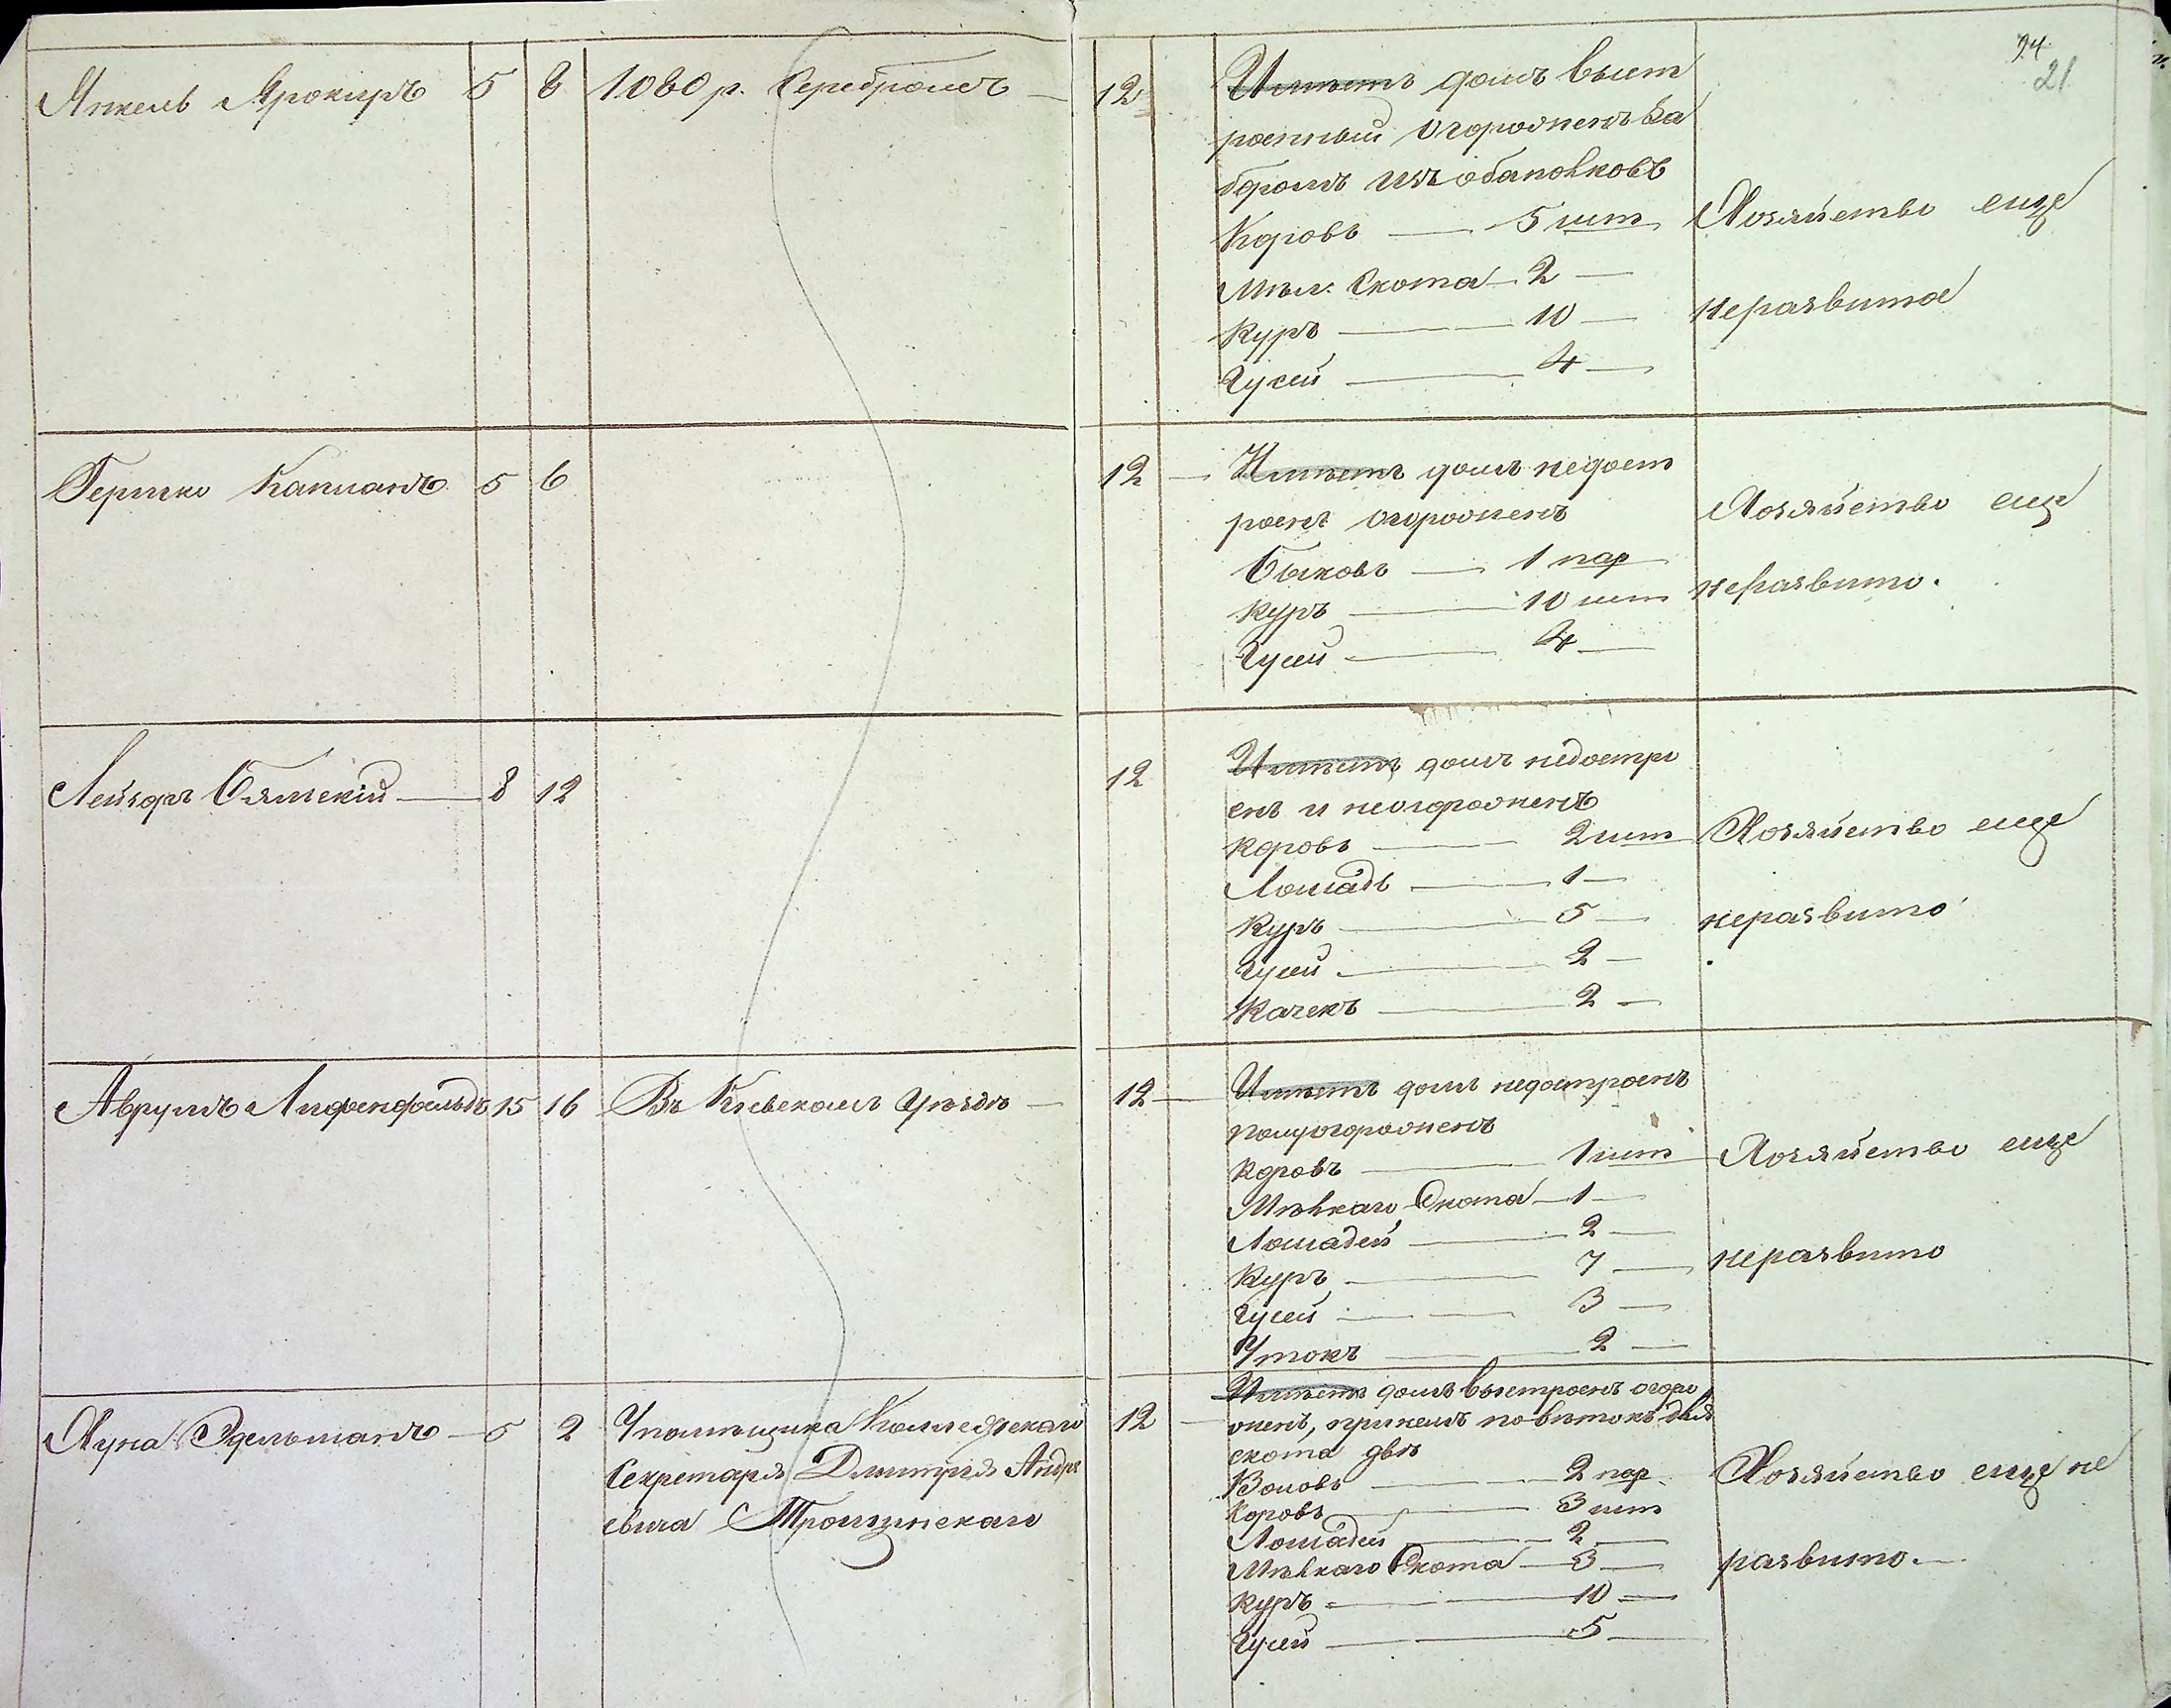 74
21
Янкель Ярокиръ 5 8 1080 р. Серебромъ —
12 Имѣетъ домъ выст
роенный огорожненъ за
боромъ изъ обаполковъ
Коровъ — 5 шт
Мѣл. Скота — 2 —
Куръ — 10 —
Гусей — 4 —
Хозяйство еще
неразвитое
Гершко Капланъ 5 6
12 — Имѣетъ домъ недост
роенъ огорожненъ
Быковъ — 1 пар
Куръ — 10 шт
Гусей — 4 —
Хозяйство еще
неразвито.
Лейзоръ Бялскій — 8 12
12 Имѣетъ домъ недостро
енъ и неогорожненъ
Коровъ — 2 шт
Лошадь — 1 —
Куръ — 5 —
Гусей — 2 —
Качекъ — 2 —
Хозяйство еще
неразвито
Аврумъ Лифенфельдъ 15 16 Въ Кіевскомъ Уѣздѣ —
12 — Имѣетъ домъ недостроенъ
полуогорожненъ
Коровъ — 1 шт
Мѣлкаго Скота — 1 —
Лошадей — 2 —
Куръ — 7 —
Гусей — 3 —
Утокъ — 2 —
Хозяйство еще
неразвито
Хуна Эдельманъ — 5 2 У помѣщика Коллежскаго
Секретаря Дмитрія Андре
евича Трощинскаго
12 — Имѣетъ домъ выстроенъ огоро
жненъ, при немъ повѣтокъ для
скота двѣ
Воловъ — 2 пар
Коровъ — 3 шт
Лошадей — 2 —
Мѣлкаго Скота — 3 —
Куръ — 10 —
Гусей — 5 —
Хозяйство еще не
развито. —